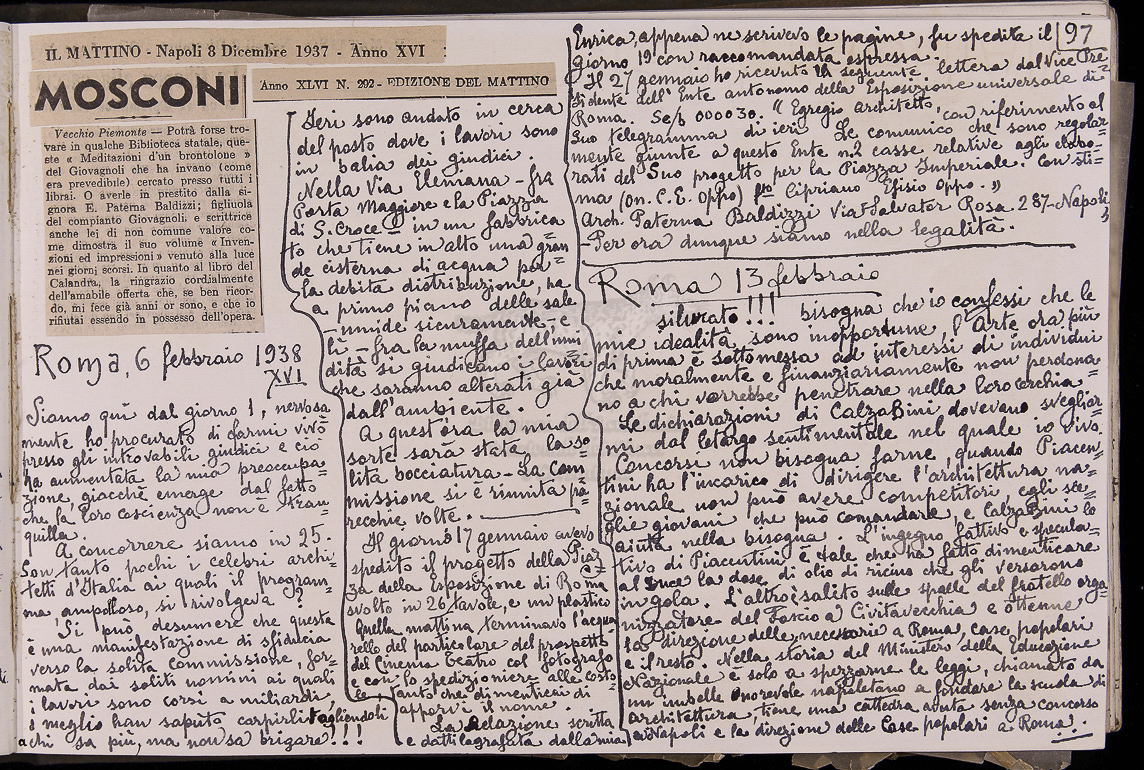 IL MATTINO - Napoli 8 Dicembre 1937 - Anno XVI
MOSCONI
Anno XLVI N. 292 - EDIZIONE DEL MATTINO
Vecchio Piemonte — Potrà forse tro-
vare in qualche Biblioteca statale, que-
ste « Meditazioni d'un brontolone »
del Giovagnoli che ha invano (come
era prevedibile) cercato presso tutti i
librai. O averle in prestito dalla si-
gnora E. Paterna Baldizzi; figliuola
del compianto Giovagnoli, e scrittrice
anche lei di non comune valore co-
me dimostra il suo volume « Inven-
zioni ed impressioni » venuto alla luce
nei giorni scorsi. In quanto al libro del
Calandra, la ringrazio cordialmente
dell'amabile offerta che, se ben ricor-
do, mi fece già anni or sono, e che io
rifiutai essendo in possesso dell'opera.
Roma, 6 febbraio 1938
XVI
Siamo qui dal giorno 1, nervosa
mente ho procurato di farmi vivo
presso gli introvabili giudici e ciò
ha aumentata la mia preoccupa=
zione, giacchè emerge dal fatto
che la loro coscienza non è tran=
quilla.
A concorrere siamo in 25.
Son tanto pochi i celebri archi=
tetti d'Italia ai quali il program=
ma, ampolloso, si rivolgeva?
Si può desumere che questa
è una manifestazione di sfiducia
verso la solita commissione, for=
mata dai soliti uomini ai quali
i lavori sono corsi a miliardi,
meglio han saputo carpirli togliendoli
a chi sa più, ma non sa brigare!!!
Ieri sono andato in cerca
del posto dove i lavori sono
in balia dei giudici.
Nella Via Eleniana - fra
Porta Maggiore e la Piazza
di S. Croce - in un fabbrica
to che tiene in alto una gran
de cisterna di acqua per
la debita distribuzione, ha
a primo piano delle sale
- umide sicuramente, e
lì - fra la muffa dell'umi
dità si giudicano i lavori
che saranno alterati già
dall'ambiente.
A quest'ora la mia
sorte sarà stata, la so
lita bocciatura - La com
missione si è riunita pa=
recchie volte.
Il giorno 17 gennaio avevo
spedito il progetto della Piaz
za della Esposizione di Roma
svolto in 26 tavole, e un plastico
Quella mattina terminavo l'acqua
rello del particolare del prospetto
del Cinema teatro col fotografo
e con lo spedizioniere alle costo
le tanto che dimenticai di
apporvi il nome.
La Relazione scritta
e dattilografata dalla mia
97
Enrica, appena ne scrivevo le pagine, fu spedita il
giorno 19 con raccomandata espressa.
Il 27 gennaio ho ricevuto la seguente lettera dal Vice Pre=
sidente dell'Ente autonomo della Esposizione universale di
Roma. Se/b 000030. "Egregio Architetto, con riferimento al
Suo telegramma di ieri Le comunico che sono regolar=
mente giunte a questo Ente n. 2 casse relative agli elabo=
rati del Suo progetto per la Piazza Imperiale. Con sti=
ma (on. C. E. Oppo) fto Cipriano Efisio Oppo.»
Arch. Paterna Baldizzi Via Salvator Rosa 287 - Napoli
- Per ora dunque siamo nella legalità.
Roma 13 febbraio
silurato!!! bisogna che io confessi che le
mie idealità, sono inopportune, l'Arte ora più
di prima è sottomessa ad interessi di individui
che moralmente e finanziariamente non perdona
no a chi vorrebbe penetrare nella loro cerchia
Le dichiarazioni di CalzaBini, dovevano svegliar=
mi dal letargo sentimentale nel quale io vivo.
Concorsi non bisogna farne, quando Piacen=
tini ha l'incarico di dirigere l'architettura na=
zionale non può avere competitori, egli sce=
glie giovani che può comandare, e CalzaBini lo
aiuta nella bisogna. L'ingegno fattivo e specula=
tivo di Piacentini è tale che ha fatto dimenticare
al Duce la dose di olio di ricino che gli versarono
in gola. L'altro, salito sulle spalle del fratello orga
nizzatore del Fascio a Civitavecchia e ottenne
la direzione delle necessorie a Roma, case popolari
e il resto. Nella storia del Ministero della Educazione
Nazionale è solo a spezzarne le leggi, chiamato da
un imbelle onorevole napoletano a fondare la scuola di
architettura, tiene una cattedra avuta senza concorso
a Napoli e la direzione delle Case popolari a Roma.